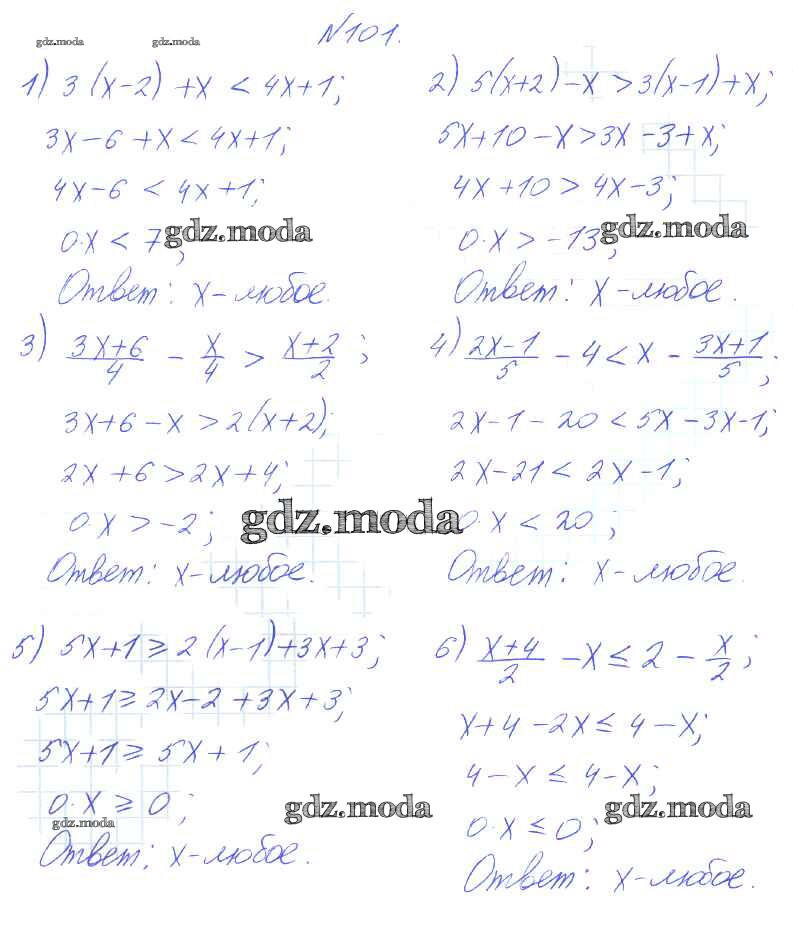 gdz.moda gdz.moda №101.
1) 3(x-2)+x < 4x+1;
3x-6+x < 4x+1;
4x-6 < 4x+1;
0·x < 7; gdz.moda
Ответ: x-любое.
2) 5(x+2)-x > 3(x-1)+x;
5x+10-x > 3x-3+x;
4x+10 > 4x-3;
0·x > -13; gdz.moda
Ответ: x-любое.
3) (3x+6)/4 - x/4 > (x+2)/2;
3x+6-x > 2(x+2);
2x+6 > 2x+4;
0·x > -2; gdz.moda
Ответ: x-любое.
4) (2x-1)/5 - 4 < x - (3x+1)/5;
2x-1-20 < 5x-3x-1;
2x-21 < 2x-1;
0·x < 20;
Ответ: x-любое.
5) 5x+1 ≥ 2(x-1)+3x+3;
5x+1 ≥ 2x-2+3x+3;
5x+1 ≥ 5x+1;
0·x ≥ 0; gdz.moda
gdz.moda
Ответ: x-любое.
6) (x+4)/2 - x ≤ 2 - x/2;
x+4-2x ≤ 4-x;
4-x ≤ 4-x;
gdz.moda
0·x ≤ 0;
Ответ: x-любое.